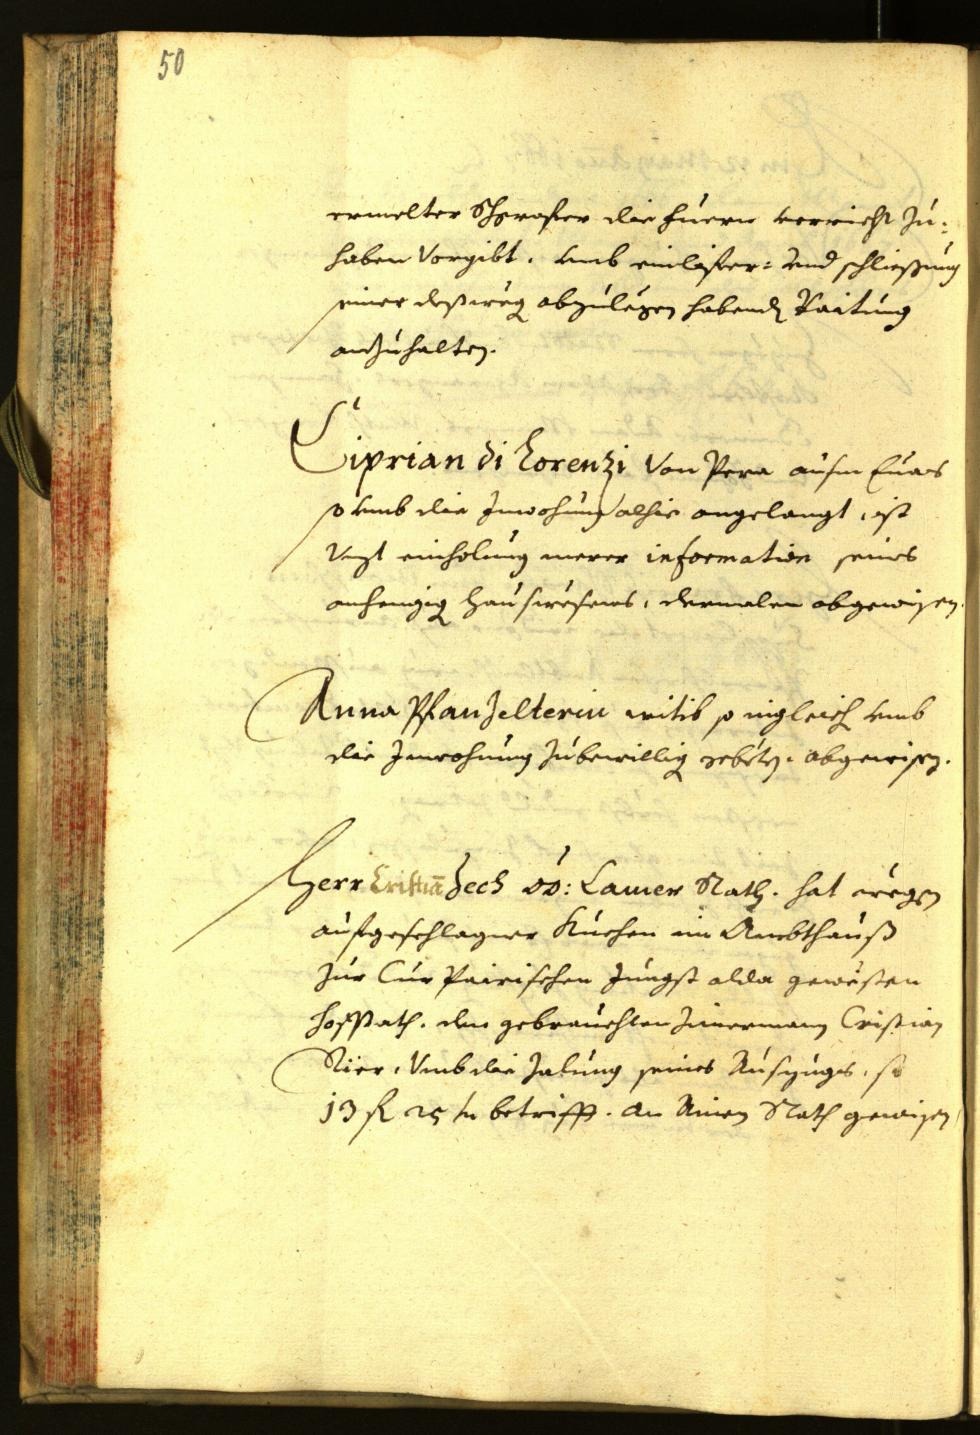 50
ermelter Schroffer die fuern verricht zu=
haben vorgibt, umb einlifer= und schliessung
seiner desswegen abzulegen habenden Raitung
anzuhalten.
Ciprian di Lorenzi von Pera ausm Euas
so umb die Inwohnung alhie angelangt, ist
unzt einholung merer information seines
anhengigen Hauswesens, dermalen abgewisen.
Anna Pfanzelterin witib so ingleich umb
die Inwohnung zubewilligen gebeten. abgewisen.
Herr Cristian Zech öö: Camer Rath. hat wegen
aufgeschlagner Kuchen im Ambthauß
zur Cur Pairischen jungst alda gewesten
hofstath. den gebrauchten Zimermann Cristian
Rier, umb die Zalung seines Auszugs, so
13 fl 25 kr betrifft. an Ainen Rath gewisen